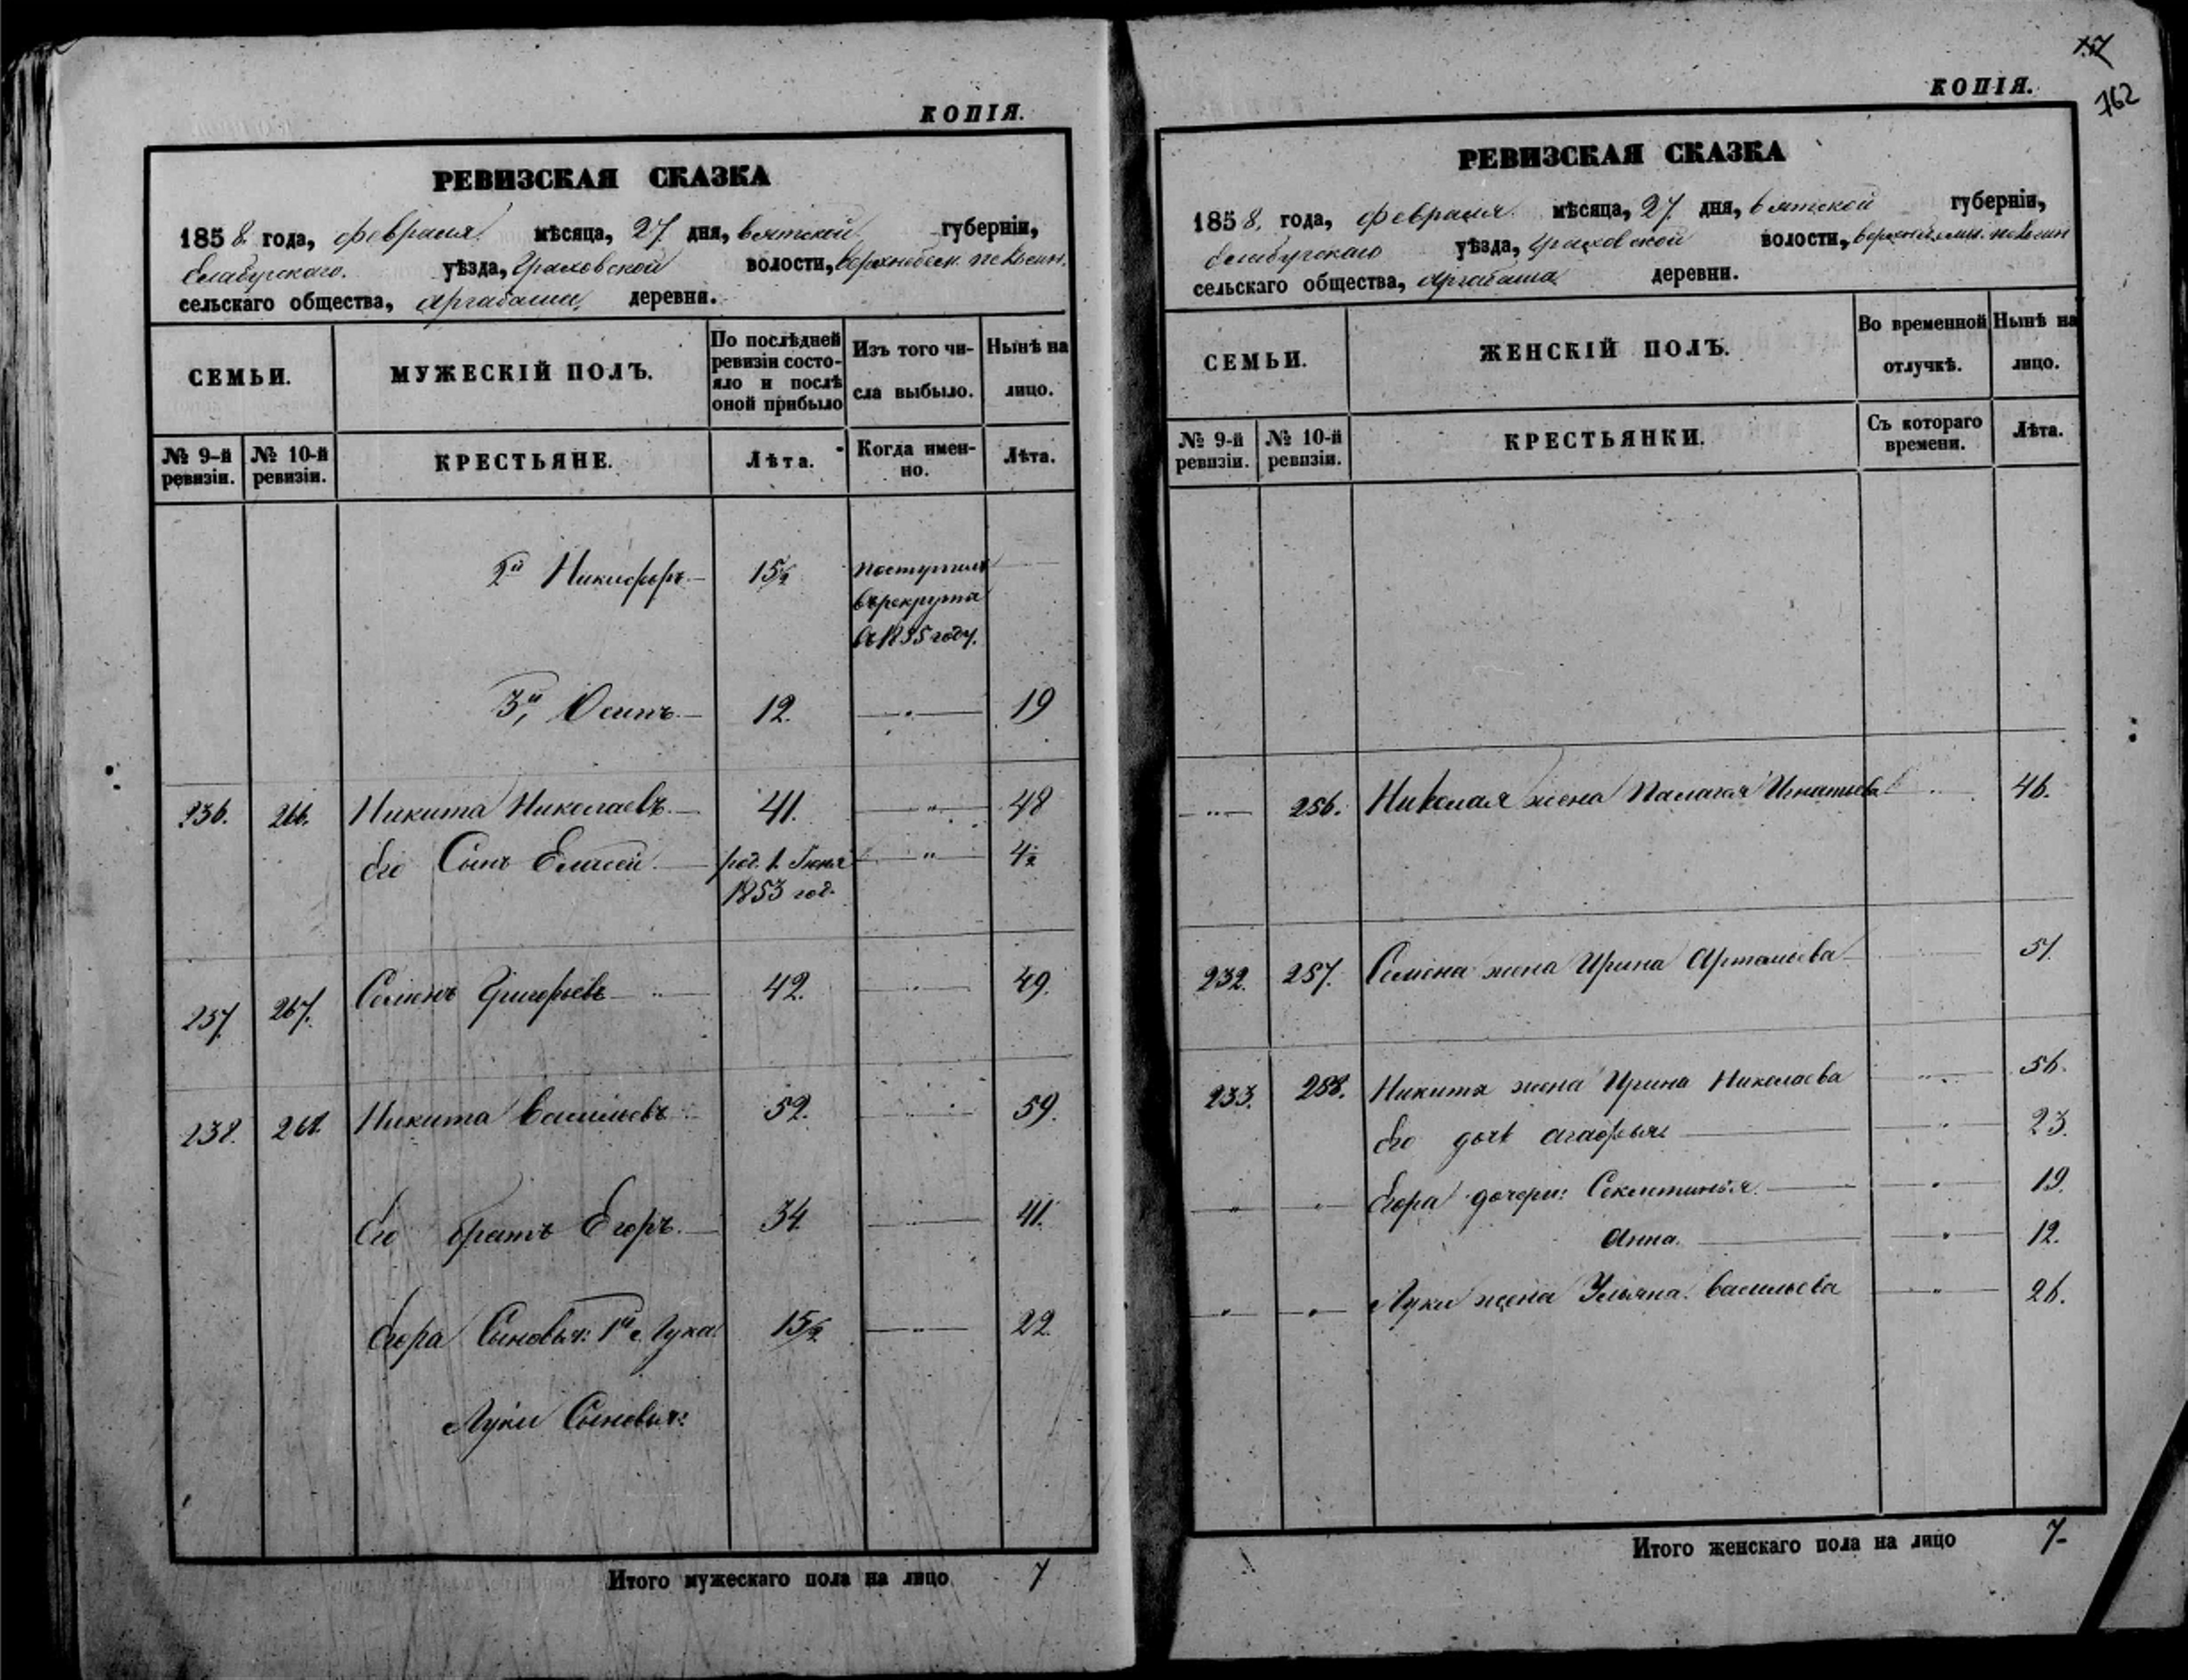 КОПІЯ.
РЕВИЗСКАЯ СКАЗКА
1858. года, февраля мѣсяца, 27. дня, вятской губерніи,
елабугскаго. уѣзда, Граховской волости,
сельскаго общества, Аргабаша деревни.
СЕМЬИ. МУЖЕСКІЙ ПОЛЪ. По послѣдней ревизіи состояло и послѣ оной прибыло Изъ того числа выбыло. Нынѣ на лицо.
№ 9-й ревизіи. № 10-й ревизіи. КРЕСТЬЯНЕ. Лѣта. Когда именно. Лѣта.
2й Никифоръ 15½ поступилъ
в рекруты
въ 1855 году.
3й, Осипъ 12. 19
236. 266. Никита Николаевъ 41. 48
его Сынъ Елисей род. 1. Іюня 4½
1853 год.
237. 267. Семенъ Григорьевъ 42. 49.
238. 268. Никита Васильевъ 52. 59.
Его братъ Егоръ. 34. 41.
Егора Сыновья: 1й Лука 15½ 22.
Луки Сыновья:
Итого мужескаго пола на лицо 7
157
762
КОПІЯ.
РЕВИЗСКАЯ СКАЗКА
1858. года, февраля мѣсяца, 27. дня, вятской губерніи,
елабугскаго уѣзда, Граховской волости,
сельскаго общества, Аргабаша деревни.
СЕМЬИ. ЖЕНСКІЙ ПОЛЪ. Во временной отлучкѣ. Нынѣ на лицо.
№ 9-й ревизіи. № 10-й ревизіи. КРЕСТЬЯНКИ. Съ котораго времени. Лѣта.
256. Николая жена Палагея Игнатьева 46.
232. 257. Семена жена Ирина Артамьева 51.
233. 258. Никиты жена Ирина Николаева 56.
Его дочь Агафья 23.
Егора дочери: Секлитинья 19.
Анна. 12.
Луки жена Ульяна Васильева 26.
Итого женскаго пола на лицо 7